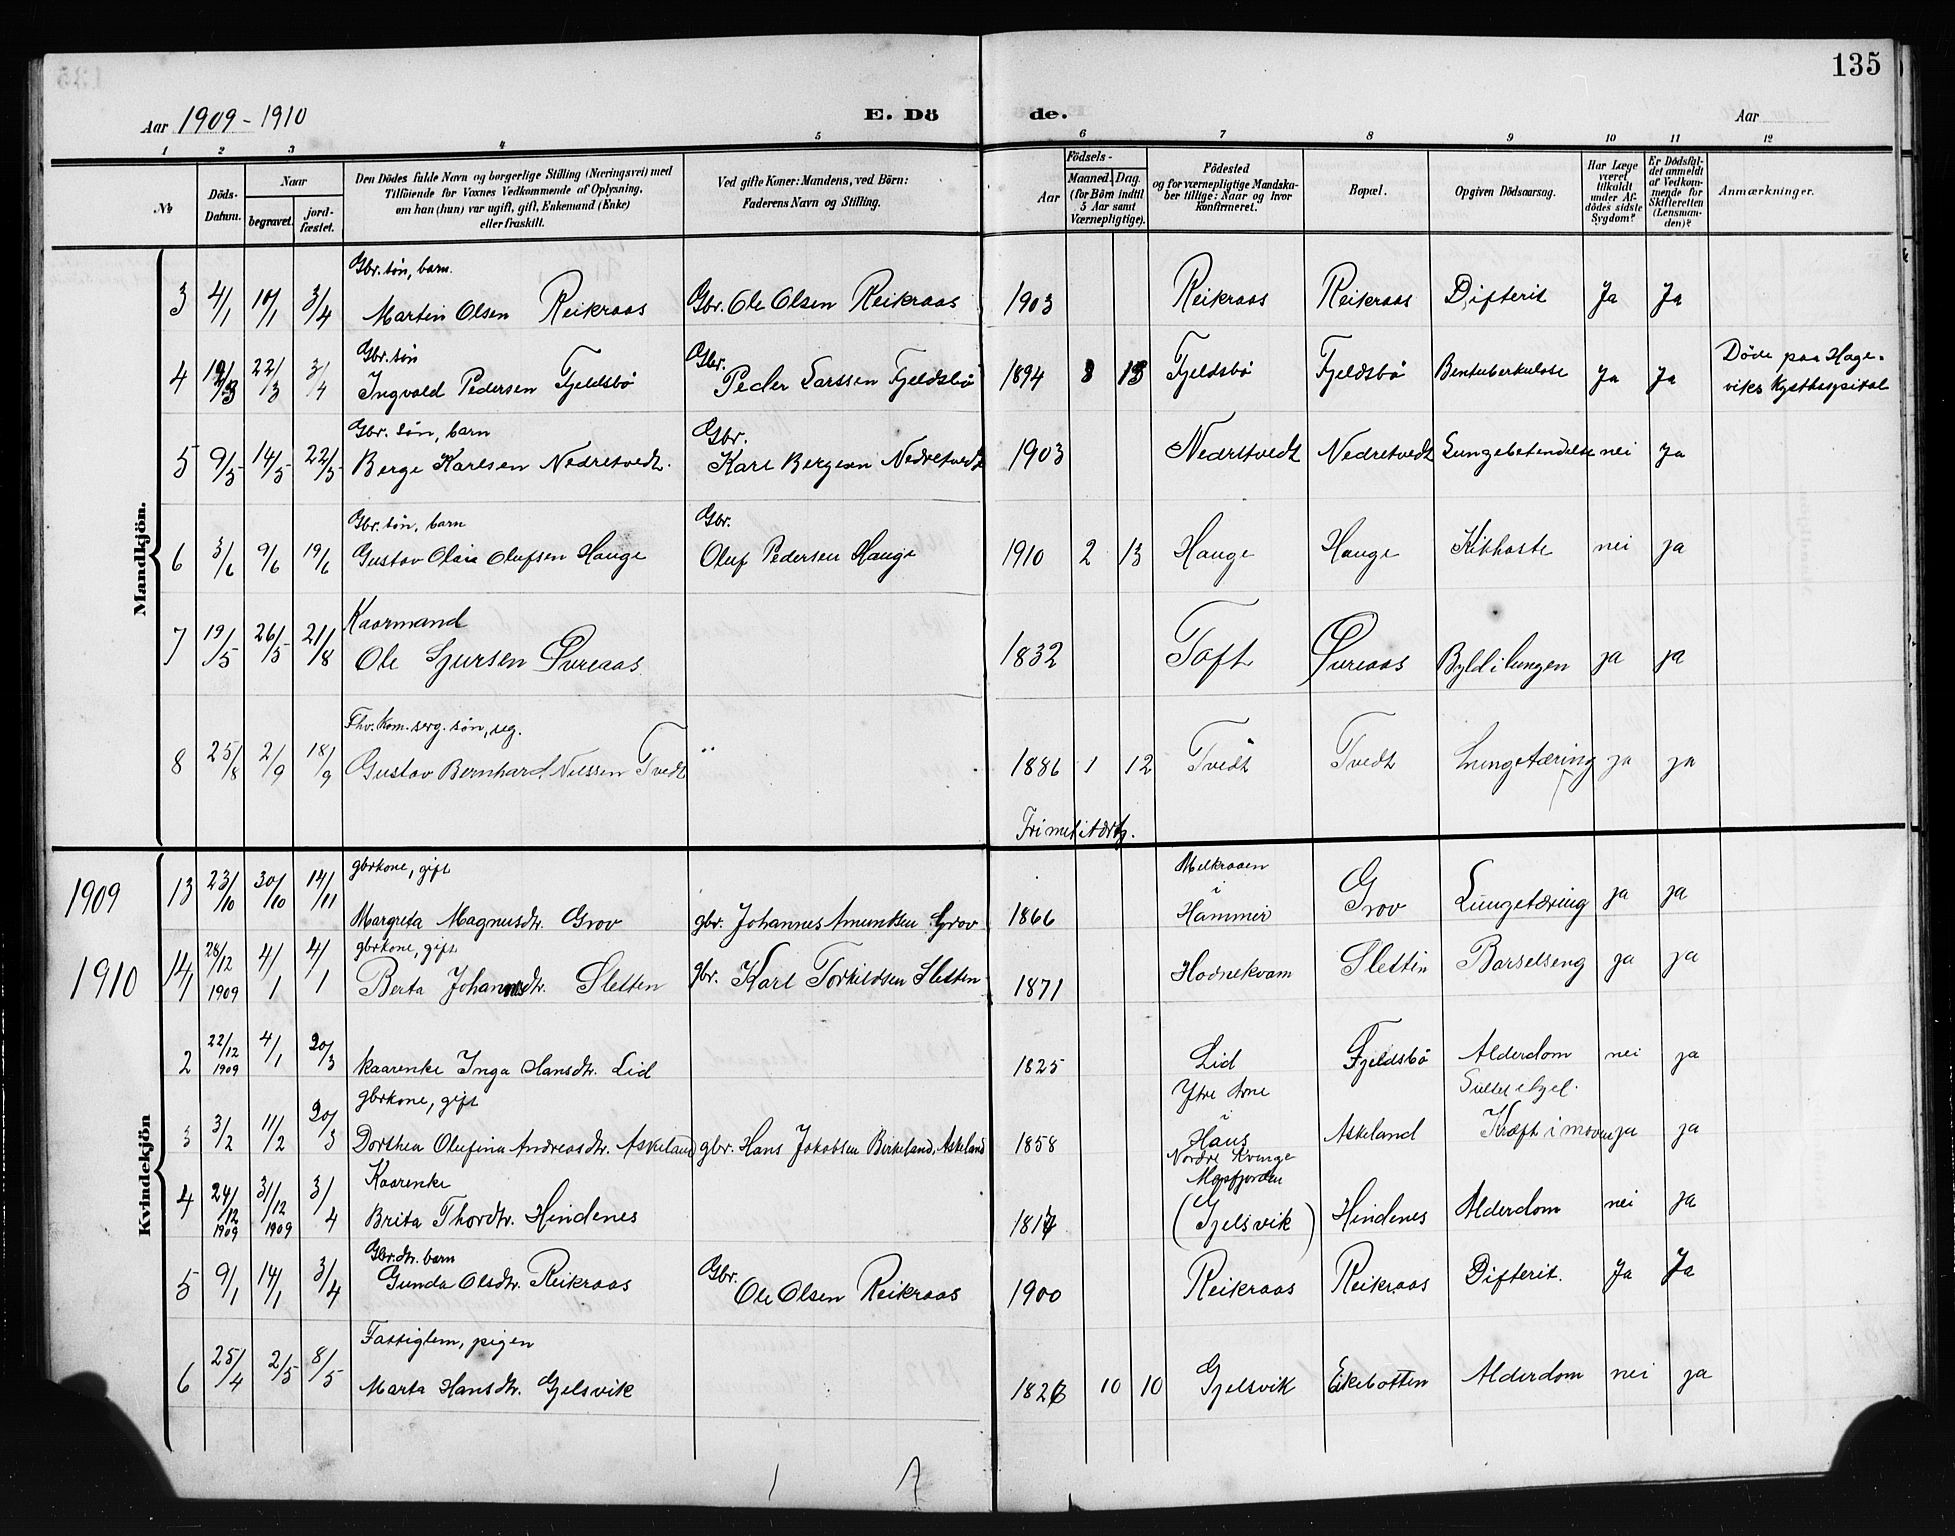 135
Aar 1909-1910
E. Dö
de.
Aar
1 2 3 4 5 6 7 8 9 10 11 12
№
Döds-Datum.
Naar
begravet.
jord-fæstet.
Den Dödes fulde Navn og borgerlige Stilling (Næringsvei) med
Tilföiende for Voxnes Vedkommende af Oplysning,
om han (hun) var ugift, gift, Enkemand (Enke)
eller fraskilt.
Ved gifte Koner: Mandens, ved Börn:
Faderens Navn og Stilling.
Födsels-
Aar
Maaned. Dag.
(for Börn indtil
5 Aar samt
Værnepligtige).
Födested
og for værnepligtige Mandska-
ber tillige: Naar og hvor
konfirmeret.
Bopæl.
Opgiven Dödsaarsag.
Har Læge
været
tilkaldt
under Af-
dödes sidste
Sygdom?
Er Dödsfal-
det anmeldt
af Vedkom-
mende for
Skifteretten
(Lensman-
den)?
Anmærkninger.
Mandkjön.
Gbr. søn, barn.
3 4/1 10/1 3/4 Martin Olsen Reikraas Gbr. Ole Olsen Reikraas 1903 Reikraas Reikraas Difterit Ja Ja
Gbr. søn Gbr. Døde paa Hage-
4 22/3 3/4 Ingvald Pedersen Fjeldsbø Peder Larssen Fjeldsbø 1894 3 13 Fjeldsbø Fjeldsbø Bentuberkulose Ja Ja viks Kysthospital
Gbr. søn, barn Gbr.
5 9/5 14/5 22/5 Berge Karlsen Nedretvedt. Karl Bergesen Nedretvedt 1903 Nedretvedt Nedretvedt Lungebetendelse nei Ja
Gbr. søn, barn Gbr.
6 3/6 9/6 19/6 Gustav Olai Olufsen Hauge Oluf Pedersen Hauge 1910 2 13 Hauge Hauge Kikhoste nei ja
Kaarmand
7 19/5 26/5 21/8 Ole Sjursen Øvreaas 1832 Toft Øvreaas Byld i lungen ja ja
Fhv. kom. serg. søn, ug.
8 25/8 2/9 18/9 Gustav Bernhard Nilssen Tvedt " 1886 1 12 Tvedt Tvedt Lungetæring ja ja
Kvindekjön
gbrkone, gift Melkraaen
1909 13 23/10 30/10 14/11 Margreta Magnusdtr. Grov gbr. Johannes Amundsen Grov 1866 i Hammer Grov Lungetæring ja ja
gbrkone, gift
1910 1 28/12 1909 4/1 4/1 Berta Johannesdtr. Sletten gbr. Karl Torkildsen Sletten 1871 Hodnekvam Slettin Barselseng ja ja
2 22/12 1909 4/1 20/3 kaarenke Inga Hansdtr. Lid 1825 Lid Fjeldsbø Alderdom nei ja
gbrkone, gift Ytre Arne
3 3/2 11/2 20/3 Dorthea Olufina Andreasdtr. Askeland gbr. Hans Jakobsen Birkeland, Askeland 1858 i Haus Askeland Kræft i maven ja ja
Kaarenke Nordre Kvinge Masfjorden
4 24/12 1909 31/12 1909 3/4 Brita Thordtr. Hindenes (Gjelsvik) Hindenes Alderdom nei ja
Gbr. dtr. barn Gbr.
5 9/1 14/1 3/4 Gunda Olsdtr. Reikraas Ole Olsen Reikraas 1900 Reikraas Reikraas Difterit. Ja Ja
Fattiglem, pigen
6 25/4 2/5 8/5 Marta Hansdtr. Gjelsvik 1826 10 10 Gjelsvik Eikebotten Alderdom nei ja